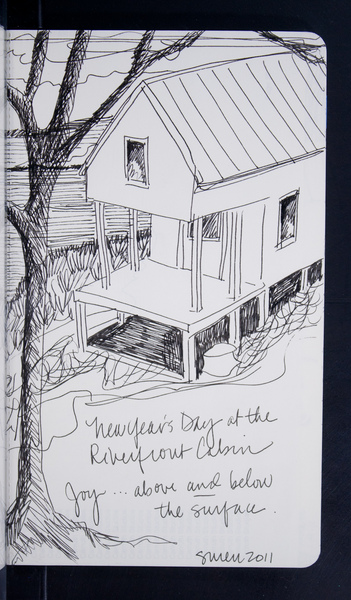 New Year's Day at the
Riverfront Cabin
Joy... above and below
the surface.
2011